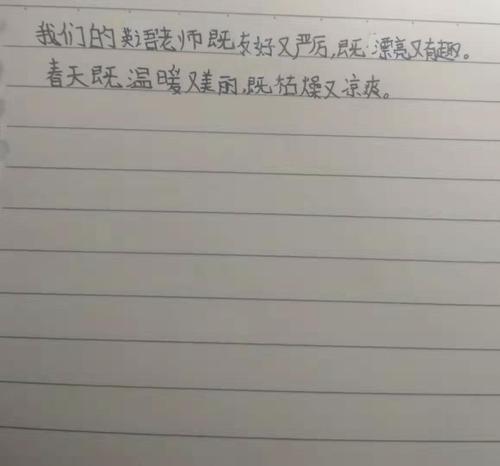 我们的英语老师既友好又严厉,既漂亮又有趣。
春天既温暖又美丽,既枯燥又凉爽。